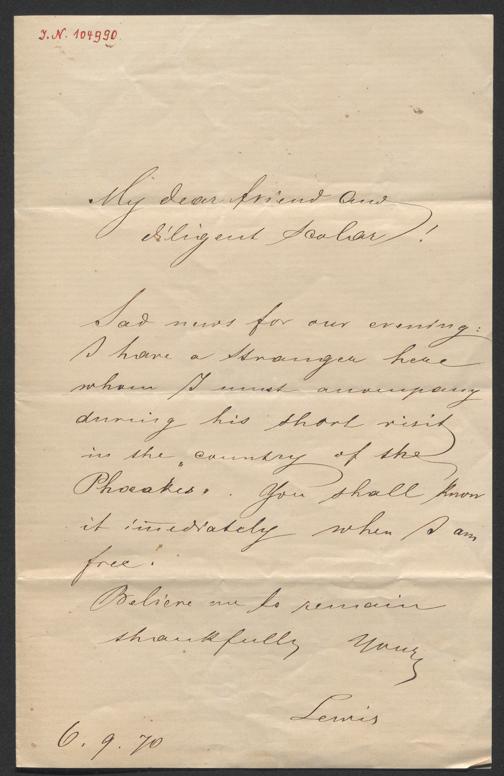 J.N. 104990
My dear friend and
diligent scolar!
Sad news for our evening:
I have a stranger here
whom I must accompany
during his short visit
in the "country of the
Phæakes". You shall know
it imediately when I am
free.
Believe me to remain
thankfully Yours
Lewis
6. 9. 70